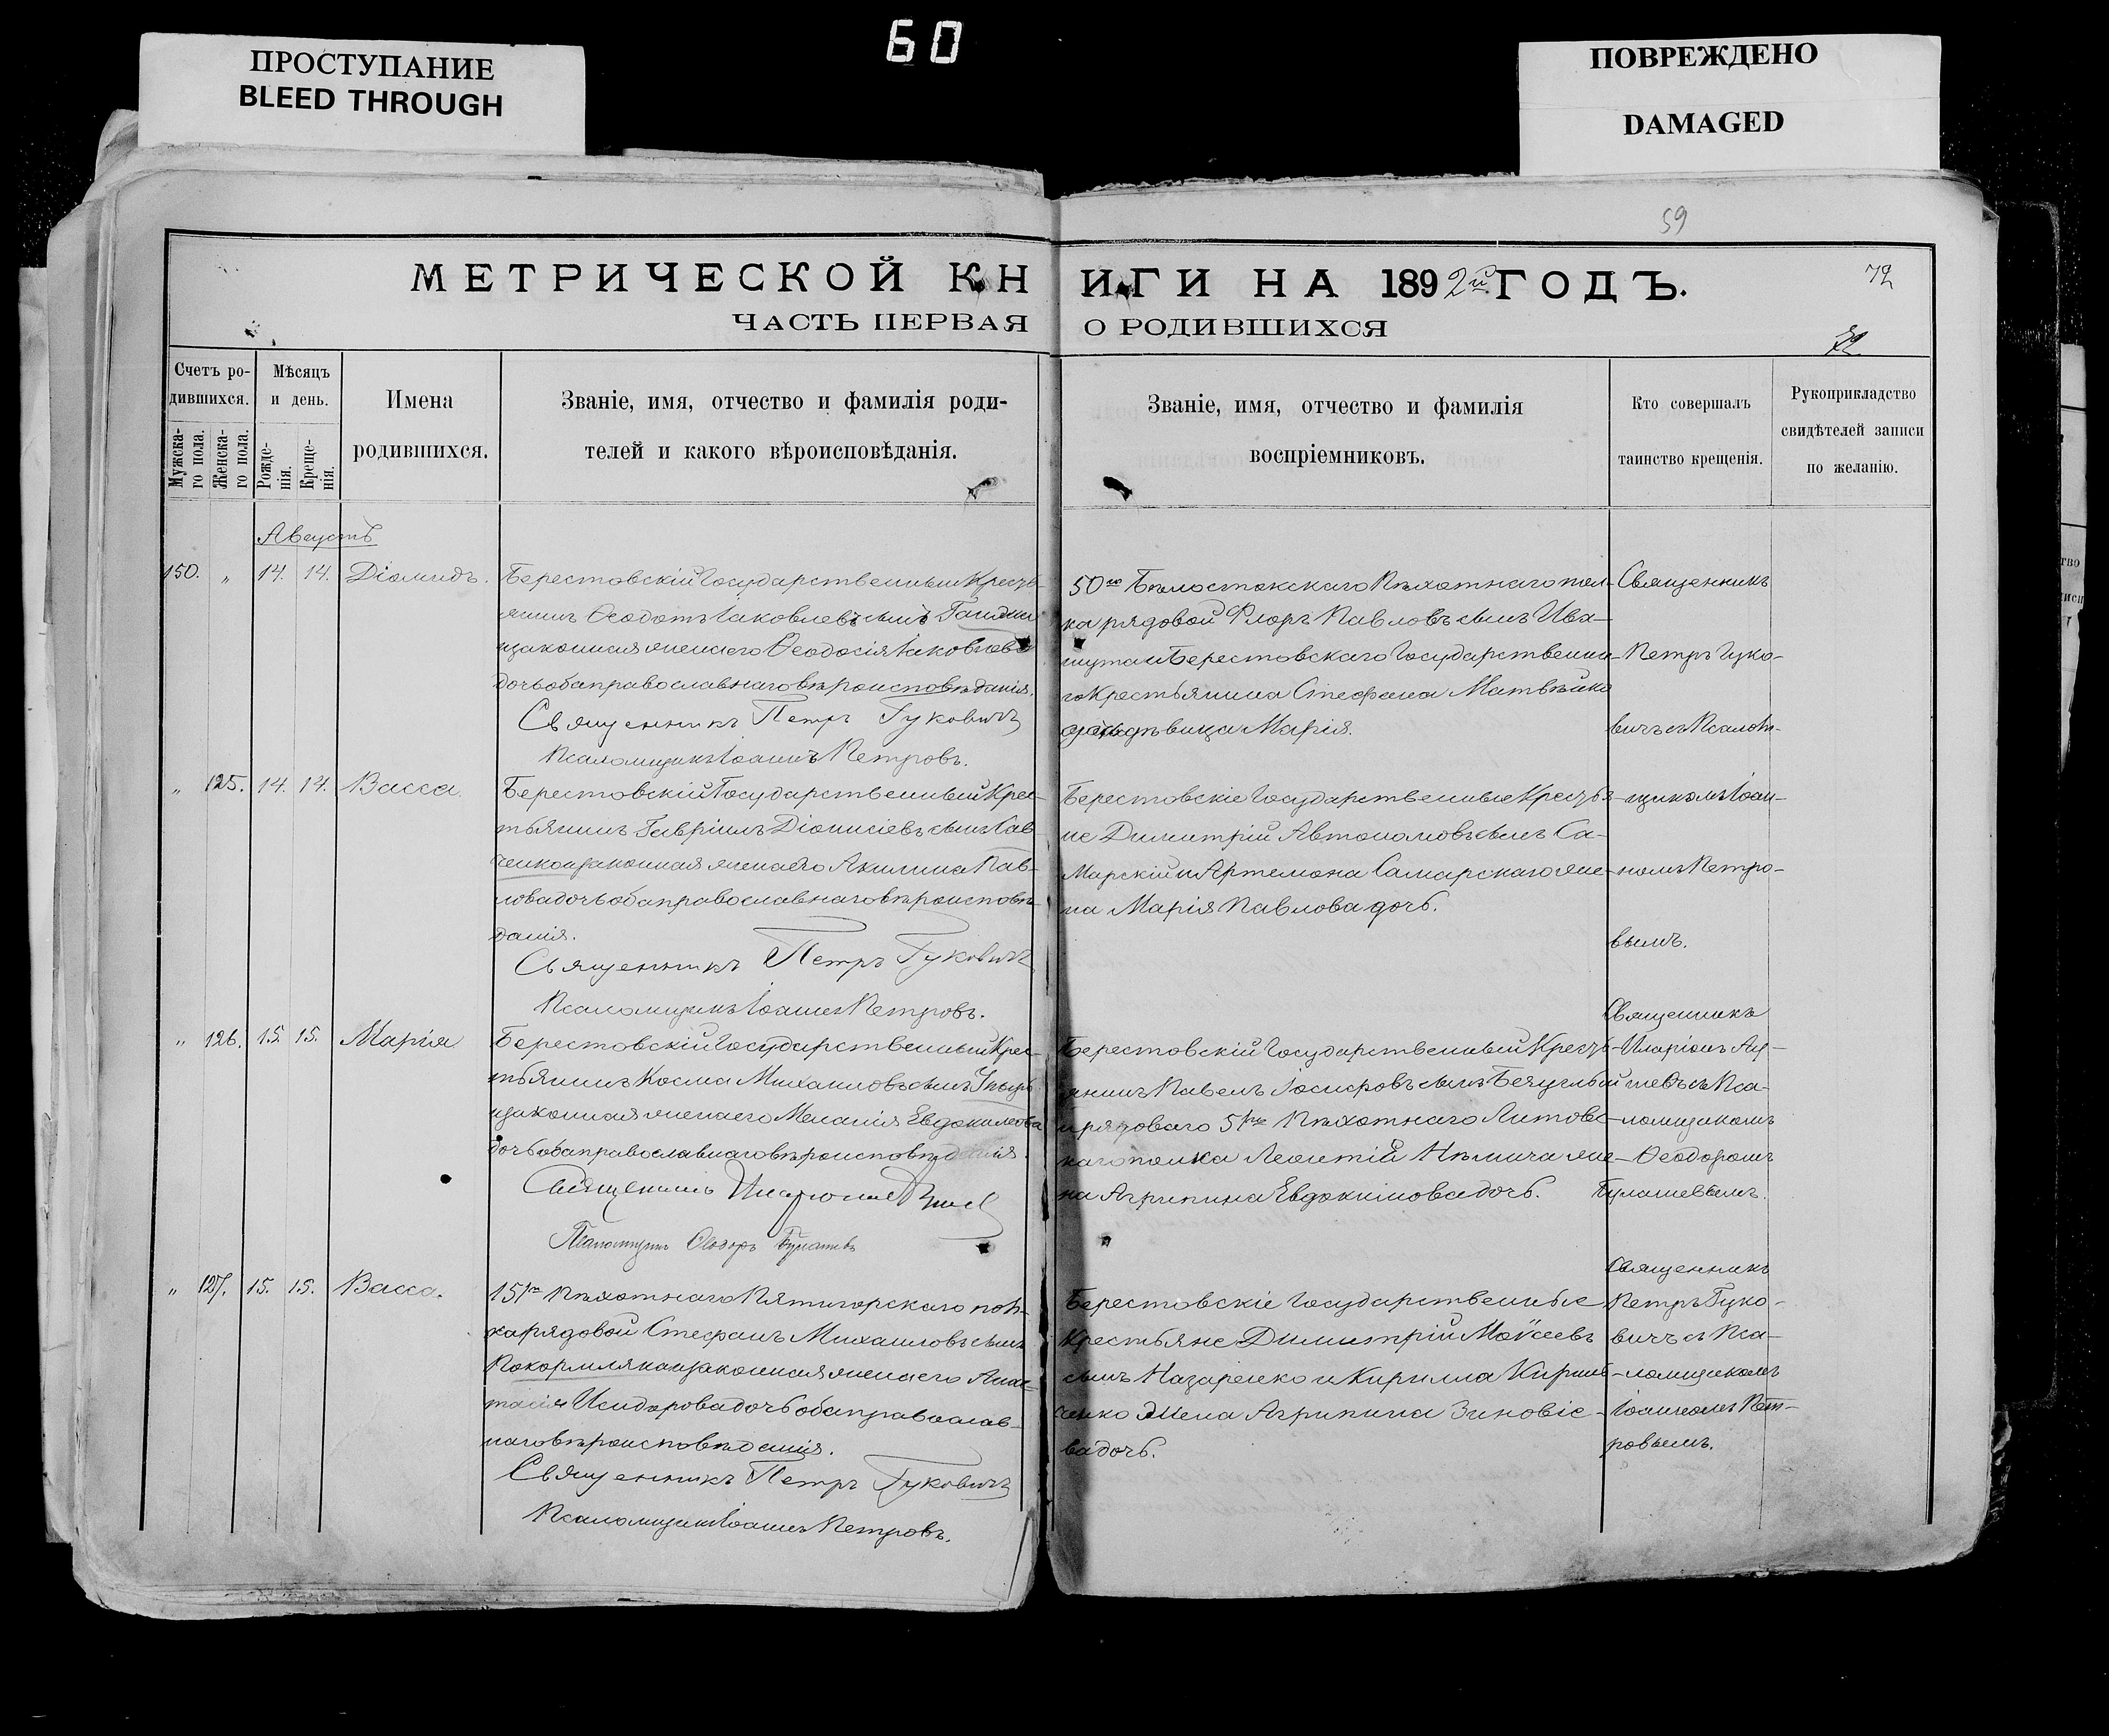 60
ПРОСТУПАНИЕ
BLEED THROUGH
ПОВРЕЖДЕНО
DAMAGED
59
МЕТРИЧЕСКОЙ КНИГИ НА 1892й ГОДЪ.
72
ЧАСТЬ ПЕРВАЯ О РОДИВШИХСЯ
72
Счетъ родившихся.
Мужскаго пола.
Женскаго пола.
Мѣсяцъ и день.
Рожденія.
Крещенія.
Имена
родившихся.
Званіе, имя, отчество и фамилія роди-
телей и какого вѣроисповѣданія.
Званіе, имя, отчество и фамилія
воспріемниковъ.
Кто совершалъ
таинство крещенія.
Рукоприкладство
свидѣтелей записи
по желанію.
Августъ
150. „ 14. 14. Діомидъ.
Берестовскій Государственный Кресть-
янинъ Ѳеодотъ Іаковлевъ сынъ
и законная жена его Ѳеодосія Іаковлева
дочь оба православнаго вѣроисповѣданія.
Священникъ Петръ Гуковичъ
Псаломщикъ Іоаннъ Петровъ.
50го Бѣлостокскаго Пѣхотнаго пол-
ка рядовой Флоръ Павловъ сынъ Ива-
и Берестовскаго Государственна-
го Крестьянина Стефана Матвѣйко
дочь дѣвица Марія.
Священникъ
Петръ Гуко-
вичъ съ Псалом-
„ 125. 14. 14. Васса
Берестовскій Государственный Крес-
тьянинъ Гавріилъ Діонисіевъ сынъ Сав-
ченко и законная жена его Акилина Пав-
лова дочь оба православнаго вѣроисповѣ-
данія.
Священникъ Петръ Гуковичъ
Псаломщикъ Іоаннъ Петровъ.
Берестовскіе Государственные Крестья-
не Димитрій Автономовъ сынъ Са-
марскій и Артемона Самарскаго же-
на Марія Павлова дочь.
щикомъ Іоан-
номъ Петро-
вымъ.
„ 126. 15. 15. Марія
Берестовскій Государственный Крес-
тьянинъ Косма Михаиловъ сынъ
и законная жена его Меланія Евдокимова
дочь оба православнаго вѣроисповѣданія.
Священникъ Иларіонъ
Псаломщикъ Ѳеодоръ Булашевъ
Берестовскій Государственный Кресть-
янинъ Павелъ Іосифовъ сынъ
и рядоваго 51го Пѣхотнаго Литовс-
каго полка Леонтій Нѣмича же-
на Агрипина Евдокимова дочь.
Священникъ
Иларіонъ
съ Пса-
ломщикомъ
Ѳеодоромъ
Булашевымъ.
„ 127. 15. 15. Васса.
151го Пѣхотнаго Пятигорскаго пол-
ка рядовой Стефанъ Михаиловъ сынъ
Покормляка и законная жена его Анас-
тасія Исидорова дочь оба православ-
наго вѣроисповѣданія.
Священникъ Петръ Гуковичъ
Псаломщикъ Іоаннъ Петровъ.
Берестовскіе Государственные
Крестьяне Димитрій Моѵсеевъ
сынъ Назаренко и Кирилла Кири-
ченко жена Агрипина Зиновіе-
ва дочь.
Священникъ
Петръ Гуко-
вичъ съ Пса-
ломщикомъ
Іоанномъ Пет-
ровымъ.